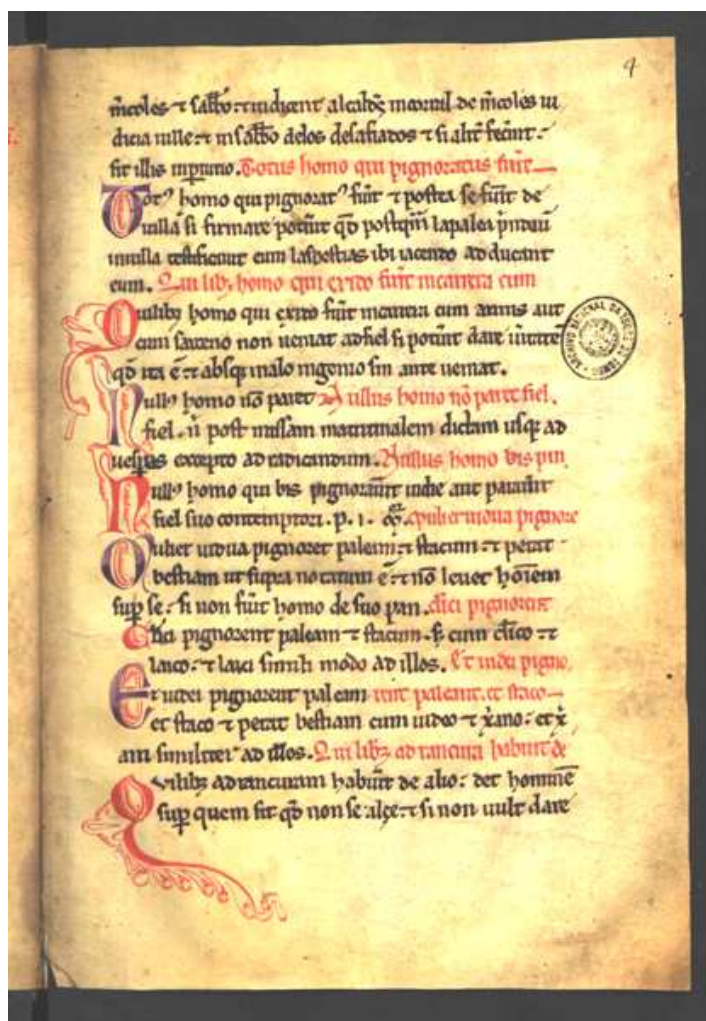 4
m̃coles ⁊ sab̃bo ⁊ iudicent alcald̃s de m̃coles iu
dicia uille ⁊ in sab̃bo delos desafiados ⁊ si alit̃ fecin̄t
sit illis in periurio. Totus homo qui pignoratus fuīt
Tot⁹ homo qui pignorat⁹ fuīt ⁊ postea se fuīt de
uilla si firmare potūit qd̄ postq̄m la palea
in uilla eum las bestias ibi iacendo adducant
eum. Qui lib; homo qui exido fuīt in carrera cum
Quilib; homo qui exido fuīt in carrera cum armis aut
cum non ueniat ad fiel si potūit dare
qd̄ ita ē ⁊ absq; malo ingenio sin ante ueniat.
Null⁹ homo nō paret Nullus homo nō paret fiel.
fiel. n̄ post missam matutinalem dictam usq; ad
uesp̄as excepto ad radicandum. Nullus homo bis pin
Null⁹ homo qui bis pignorauīt in die aut parauīt
fiel suo contemptori. p. i. Mulier uidua pignore
Mulier uidua pignoret paleam ⁊ stacum ⁊ petat
bestiam ut supra notatum ē ⁊ nō leuet hōīem
sup̄ se si non fuīt homo de suo pan. Cl̄ici pignorent
Cl̄ici pignorent paleam ⁊ stacum. cum cl̄ico ⁊
laico ⁊ laici simili modo ad illos. Et iudei pigno
Et iudei pignorent paleam rent paleam. et staco
et staco ⁊ petat bestiam cum iudeo ⁊ x̄ano ⁊ et x̄
ani similiter ad illos. Qui lib; ad rancura habūit de
Quilib; ad rancuram habūit de alio det hominē
sup̄ quem sit qd̄ non se alçe ⁊ si non uult dare
ARCHIVO NACIONAL DA TORRE DO TOMBO